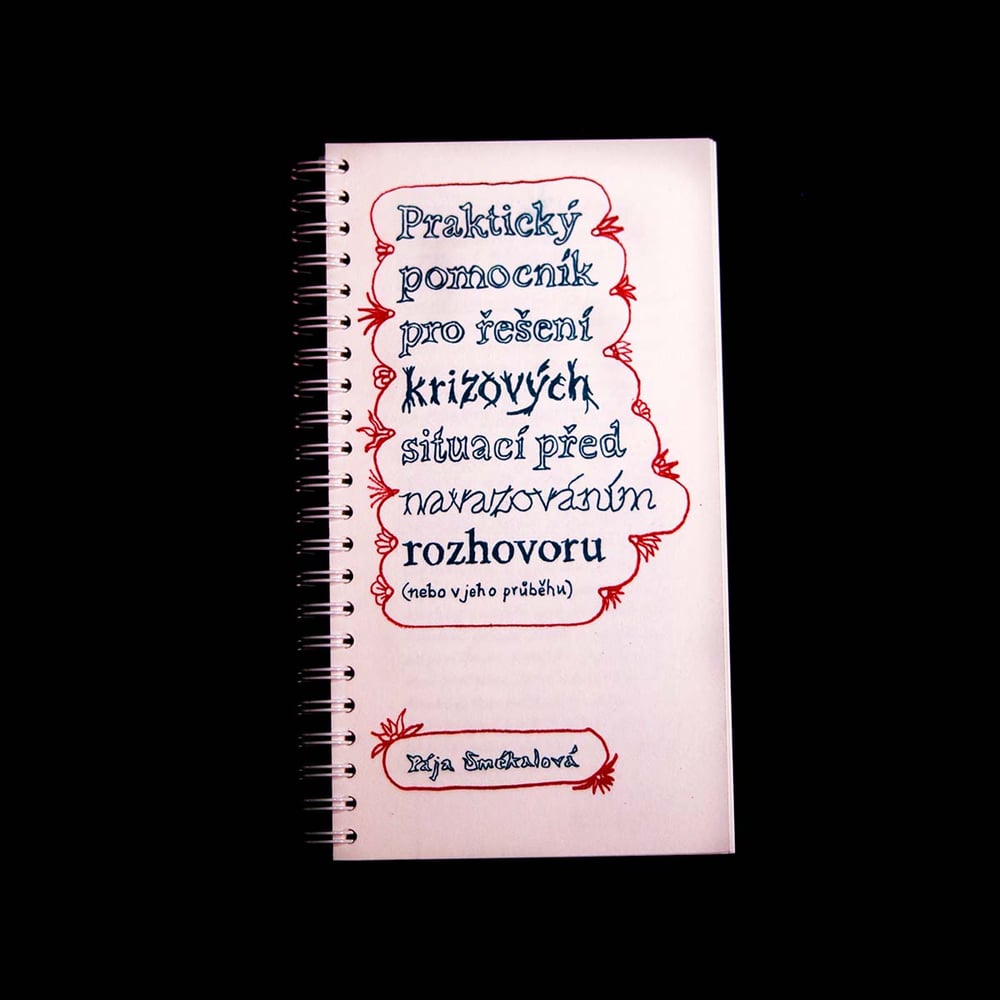 Praktický
pomocník
pro řešení
krizových
situací před
navazováním
rozhovoru
(nebo v jeho průběhu)
Pája Smékalová